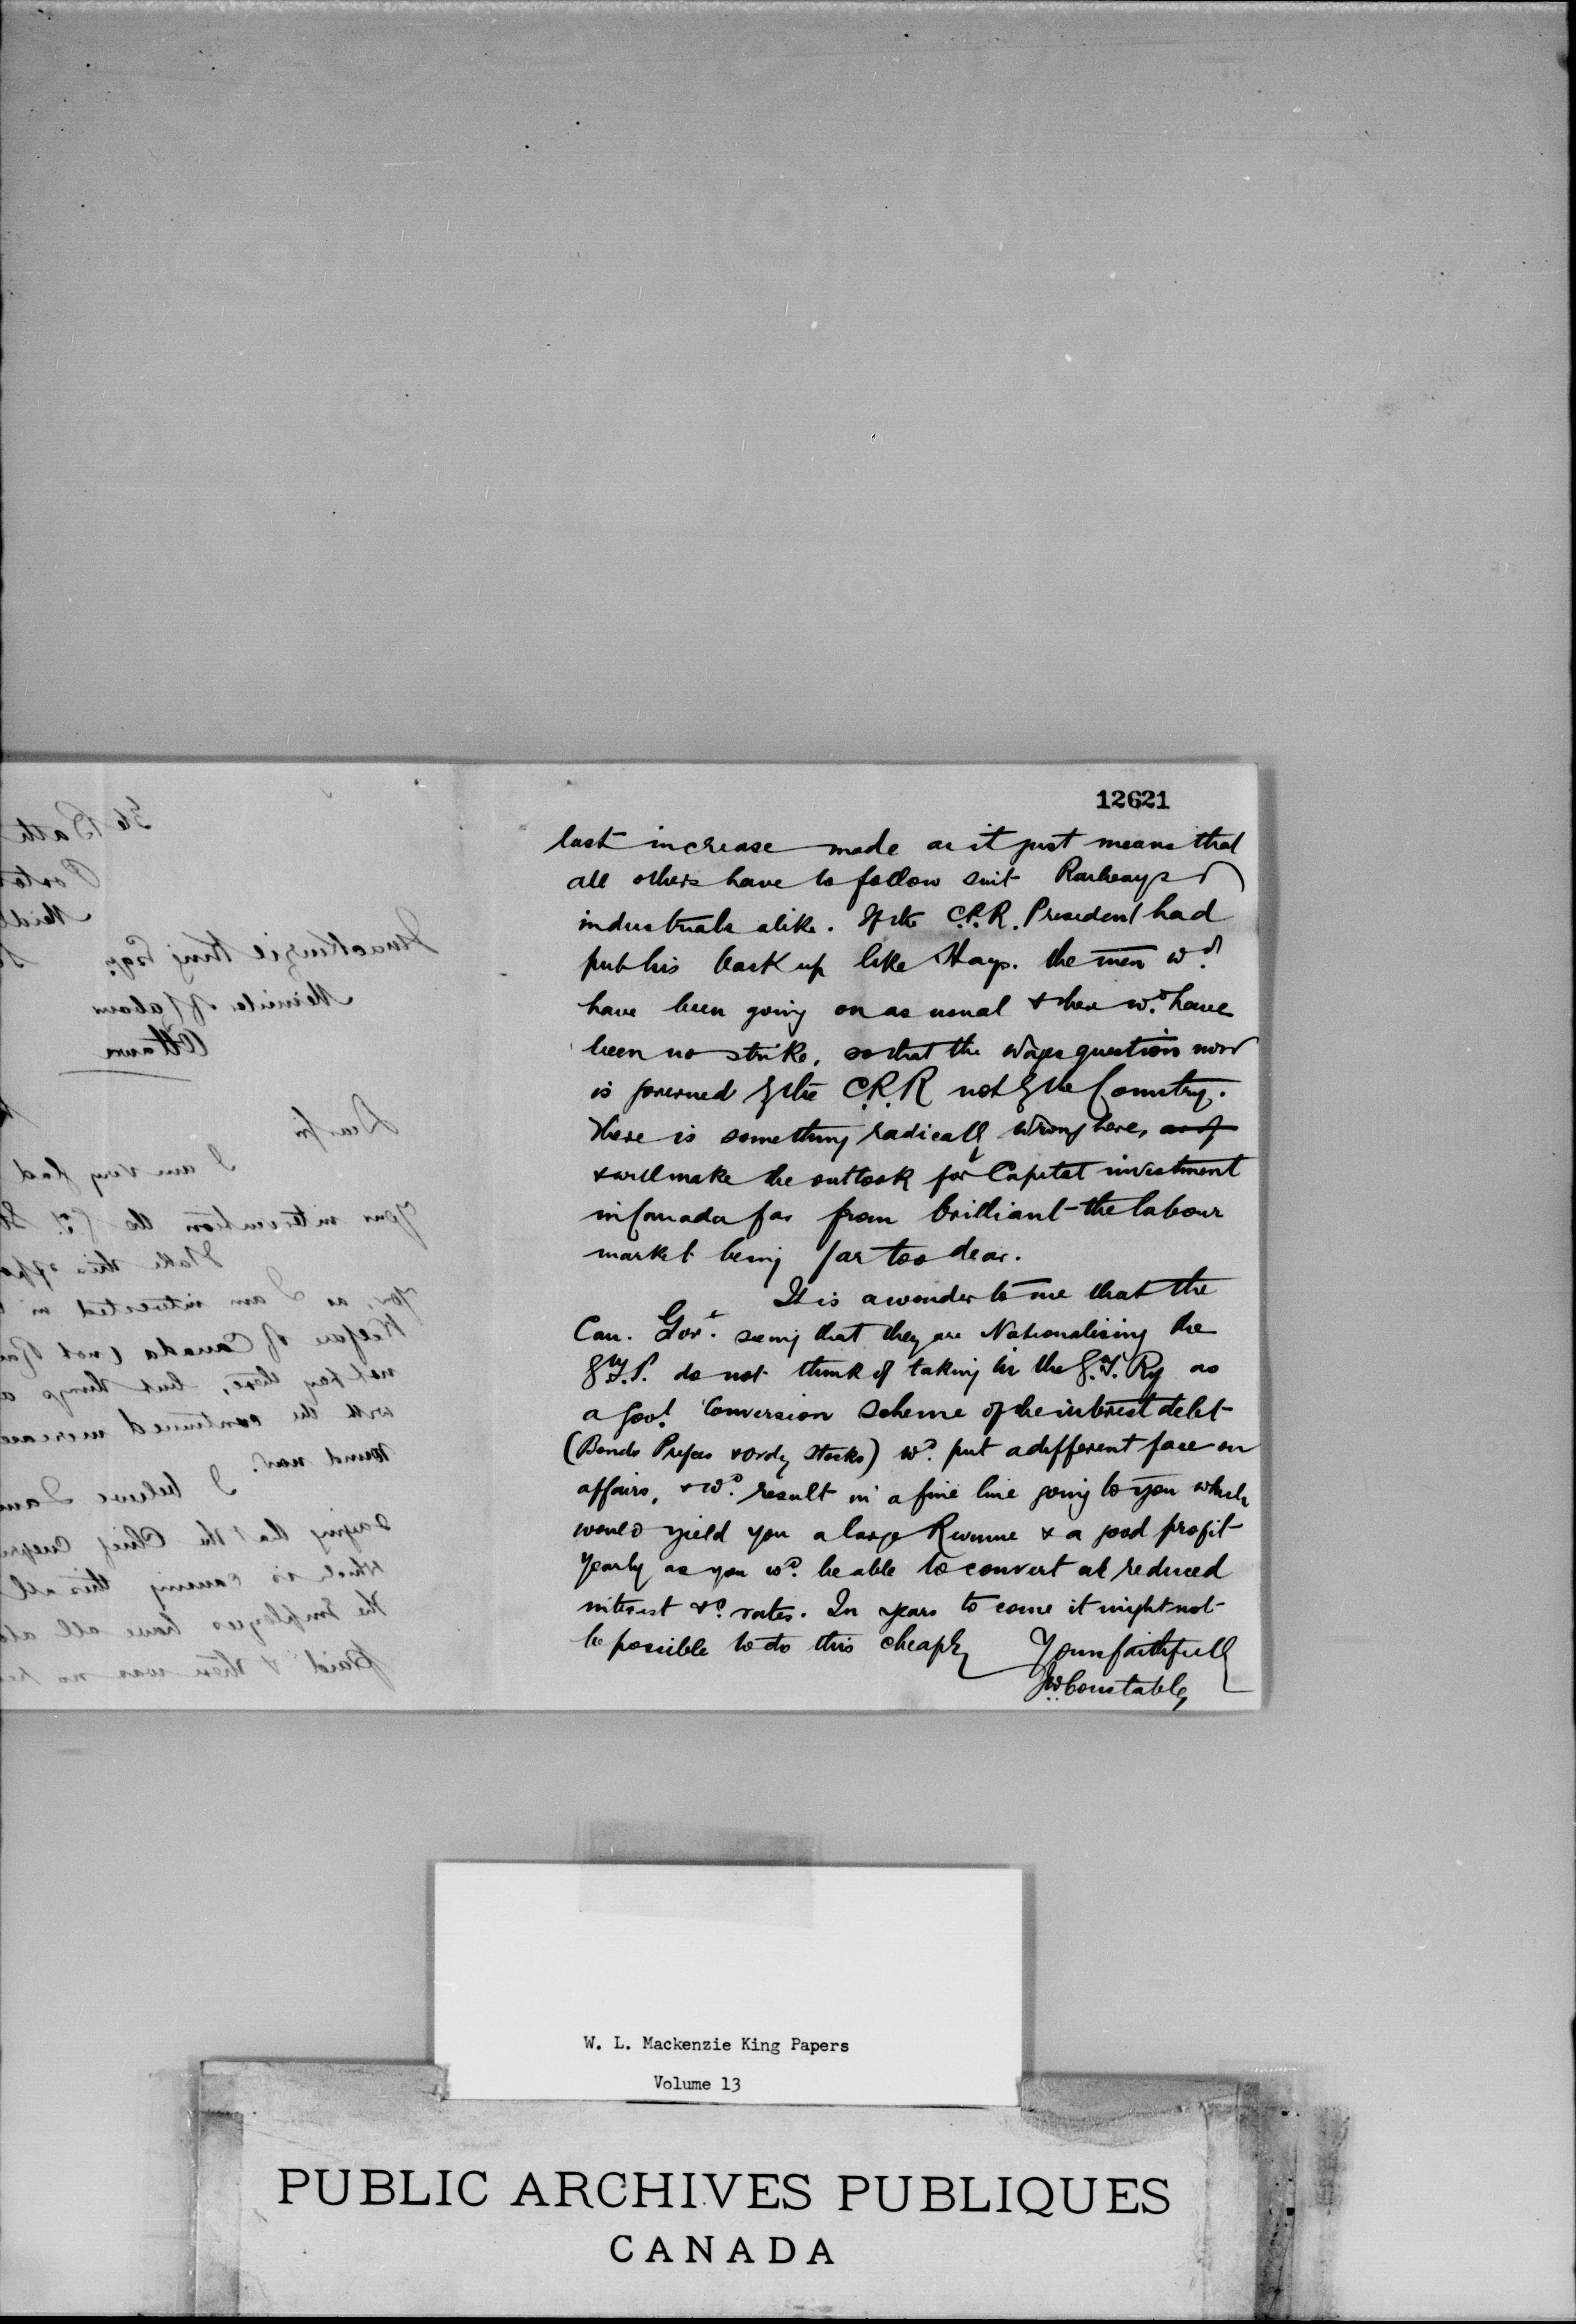 12621
last increase made as it just means that
all others have to follow suit Railways &
industrials alike. If the C.P.R. President had
put his back up like Hays. the men wd.
have been going on as usual & there wd. have
been no strike, so that the wages question now
is governed by the C.P.R not by the Country.
There is something radically wrong here,
& will make the outlook for Capital investment
in Canada far from brilliant - the labour
market being far too dear.
It is a wonder to me that the
Can. Govt. seeing that they are Nationalising the
G.T.P. do not think of taking in the G.T. Ry as
a Govt. Conversion Scheme of the interest debt
(Bonds Prefces & Ordy Stocks) wd. put a different face on
affairs, & wd. result in a fine line going to you which
would yield you a large Revenue & a good profit
yearly as you wd. be able to convert at reduced
interest &c. rates. In years to come it might not
be possible to do this cheaply Yours faithfully
Jno Constable
36 Bath
Mackenzie King Esqr.
Minister of Labour
Ottawa
Dear Sir
I am very glad
your intervention the G.T. St
I take this oppo
you, as I am interested in
Welfare of Canada (not
not pay there, but things a
with the continued increase
round now.
I believe I am
saying that the Chief
which is causing this all
the Employees have all
paid & there was no
W. L. Mackenzie King Papers
Volume 13
PUBLIC ARCHIVES PUBLIQUES
CANADA